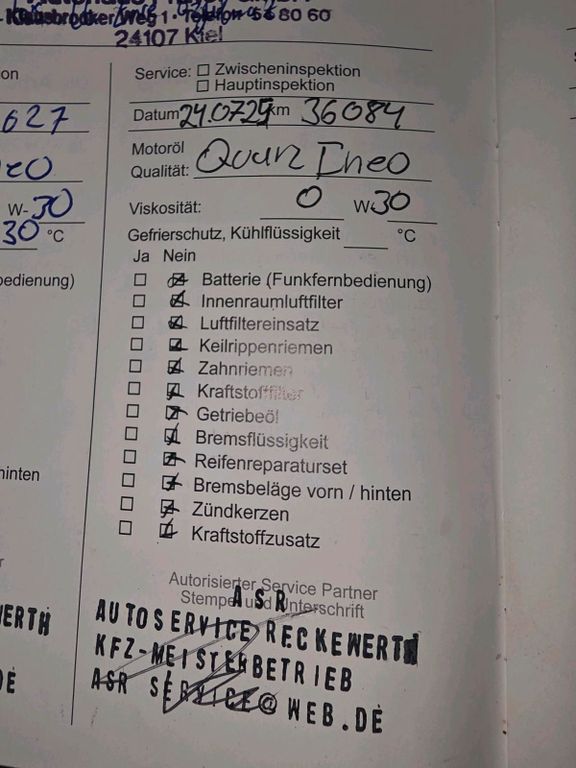 24107 Kiel
on
Service: Zwischeninspektion
Hauptinspektion
627
Datum 24.07.25 km 36084
Motoröl
Qualität: Quarz Ineo
eo
W-30
Viskosität: 0 W 30
30 °C
Gefrierschutz, Kühlflüssigkeit °C
Ja Nein
bedienung)
Batterie (Funkfernbedienung)
Innenraumluftfilter
Luftfiltereinsatz
Keilrippenriemen
Zahnriemen
Kraftstofffilter
Getriebeöl
Bremsflüssigkeit
Reifenreparaturset
hinten
Bremsbeläge vorn / hinten
Zündkerzen
Kraftstoffzusatz
Autorisierter Service Partner
Stempel und Unterschrift
ASR
WERTH
AUTOSERVICE RECKEWERTH
KFZ-MEISTERBETRIEB
DE
ASR SERVICE@WEB.DE